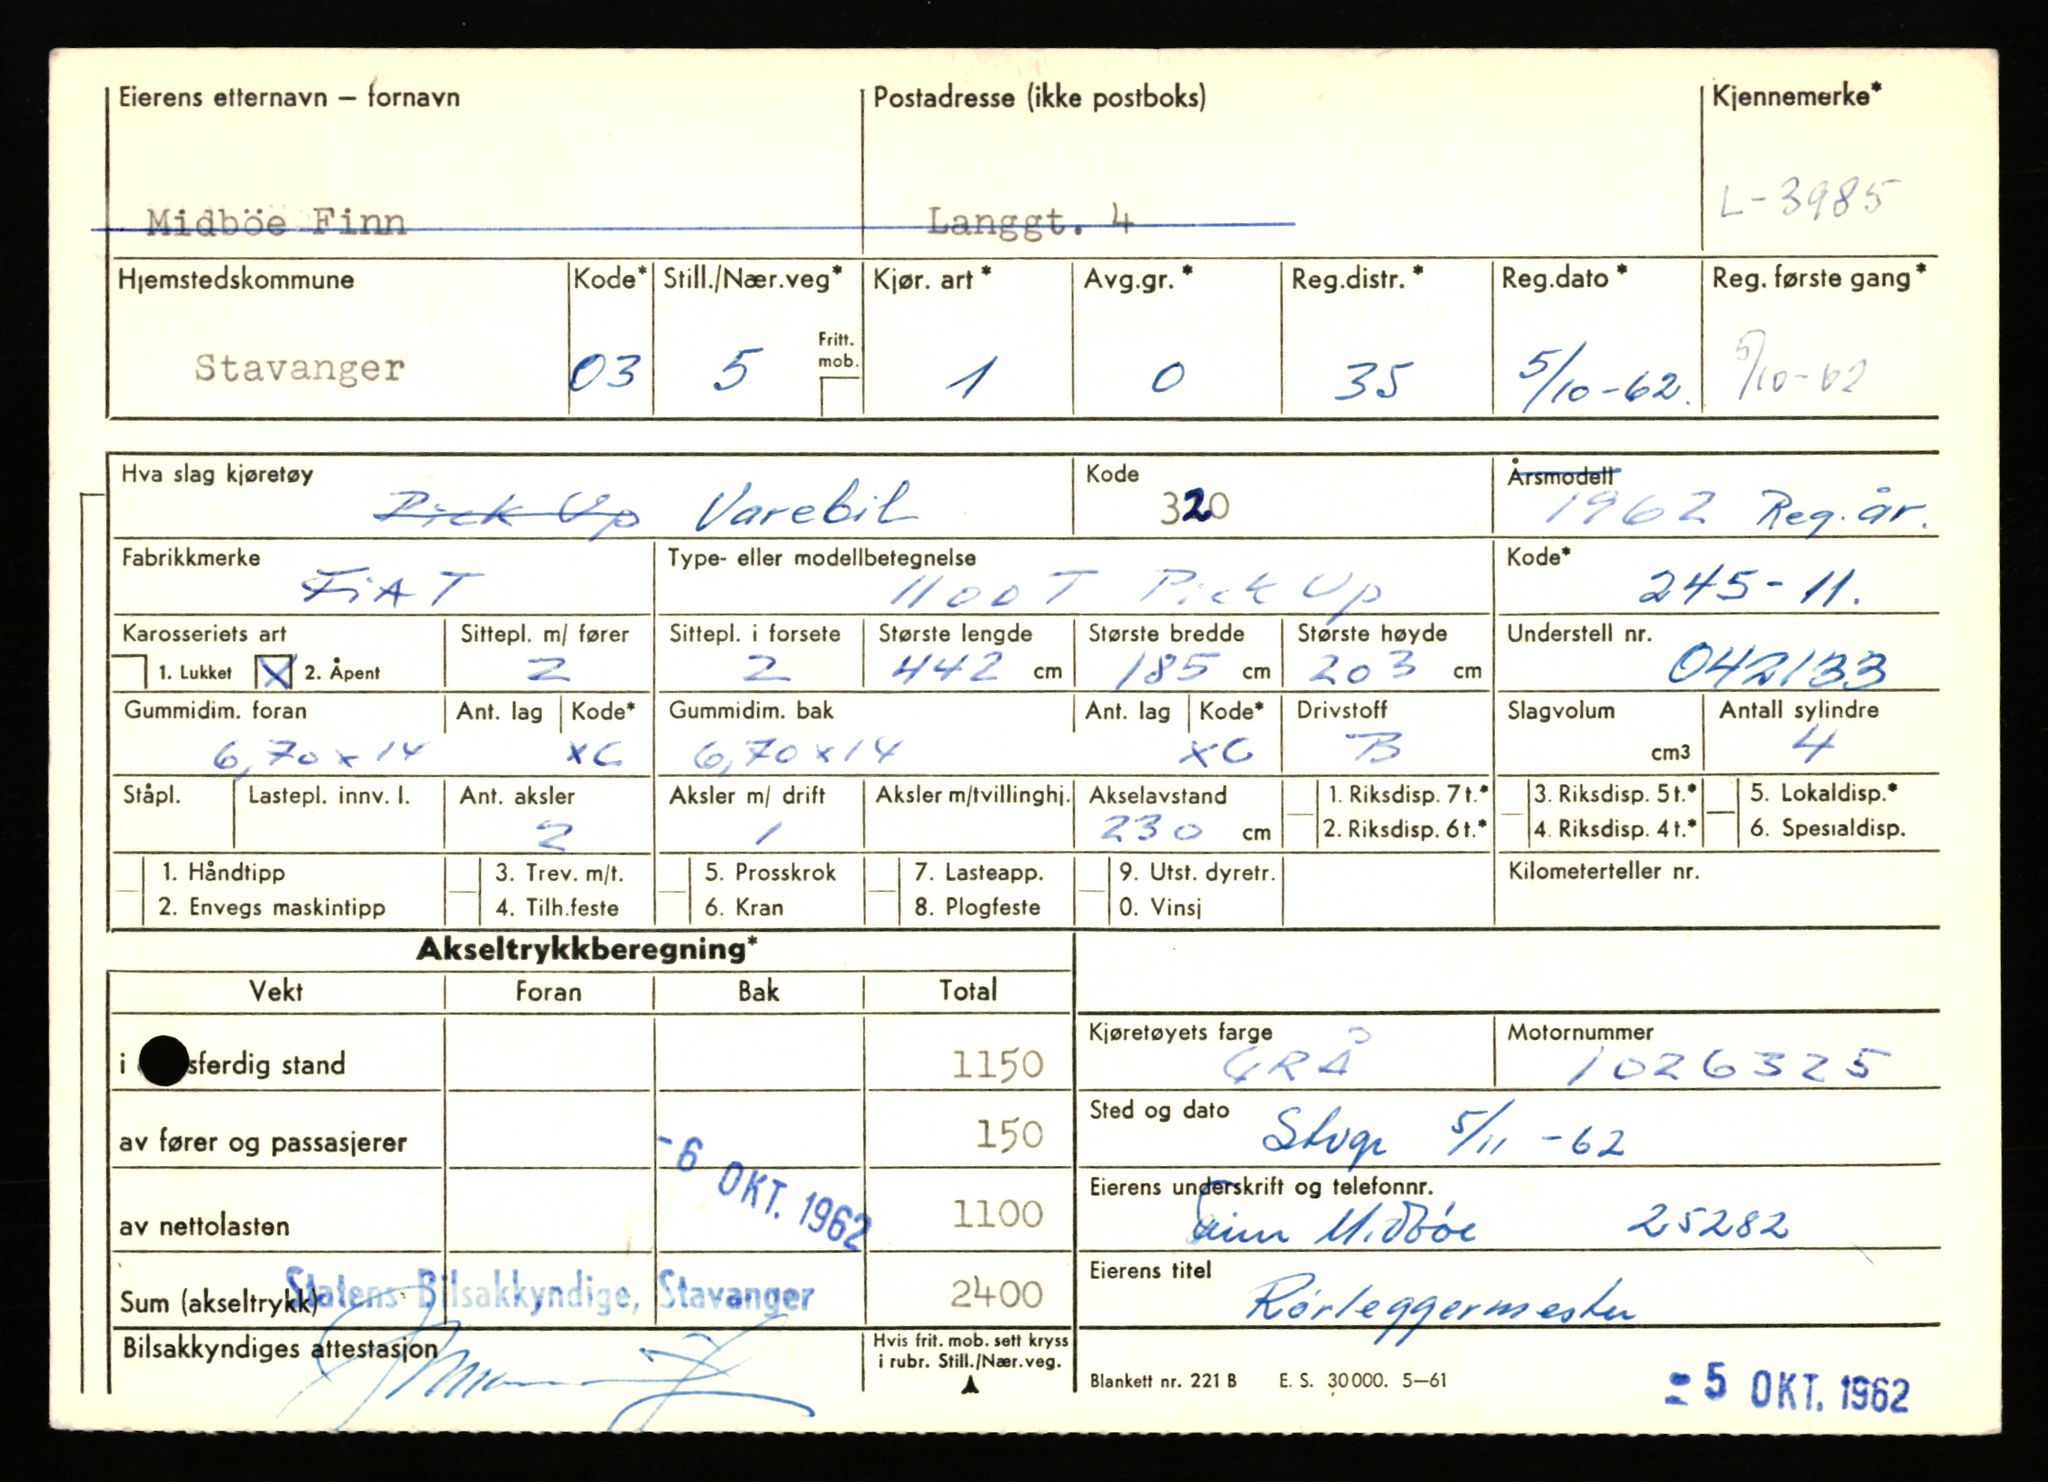 Eierens etternavn – fornavn Postadresse (ikke postboks) Kjennemerke*
Midböe Finn Langgt. 4 L-3985
Hjemstedskommune Kode* Still./Nær.veg* Kjør. art* Avg.gr.* Reg.distr.* Reg.dato* Reg. første gang*
Fritt. mob.
Stavanger 03 5 1 0 35 5/10-62. 5/10-62
Hva slag kjøretøy Kode Årsmodell
Pick Up Varebil 320 1962 Reg.år.
Fabrikkmerke Type- eller modellbetegnelse Kode*
FiAT 1100T Pick Up 245-11.
Karosseriets art Sittepl. m/ fører Sittepl. i forsete Største lengde Største bredde Største høyde Understell nr.
1. Lukket X 2. Åpent 2 2 442 cm 185 cm 203 cm 042133
Gummidim. foran Ant. lag Kode* Gummidim. bak Ant. lag Kode* Drivstoff Slagvolum Antall sylindre
6,70 x 14 XC 6,70 x 14 XC B cm3 4
Ståpl. Lastepl. innv. l. Ant. aksler Aksler m/ drift Aksler m/tvillinghj. Akselavstand 1. Riksdisp. 7 t.* 3. Riksdisp. 5 t.* 5. Lokaldisp.*
2 1 230 cm 2. Riksdisp. 6 t.* 4. Riksdisp. 4 t.* 6. Spesialdisp.
1. Håndtipp 3. Trev. m/t. 5. Prosskrok 7. Lasteapp. 9. Utst. dyretr. Kilometerteller nr.
2. Envegs maskintipp 4. Tilh.feste 6. Kran 8. Plogfeste 0. Vinsj
Akseltrykkberegning*
Vekt Foran Bak Total
Kjøretøyets farge Motornummer
i sferdig stand 1150 GRÅ 1026325
Sted og dato
av fører og passasjerer 150 Stvgr 5/11 -62
-6 OKT. 1962
Eierens underskrift og telefonnr.
av nettolasten 1100 Finn Midböe 25282
Eierens titel
Sum (akseltrykk) Statens Bilsakkyndige, Stavanger 2400 Rørleggermester
Bilsakkyndiges attestasjon Hvis frit. mob. sett kryss
i rubr. Still./Nær.veg.
Blankett nr. 221 B E. S. 30 000. 5–61
-5 OKT. 1962